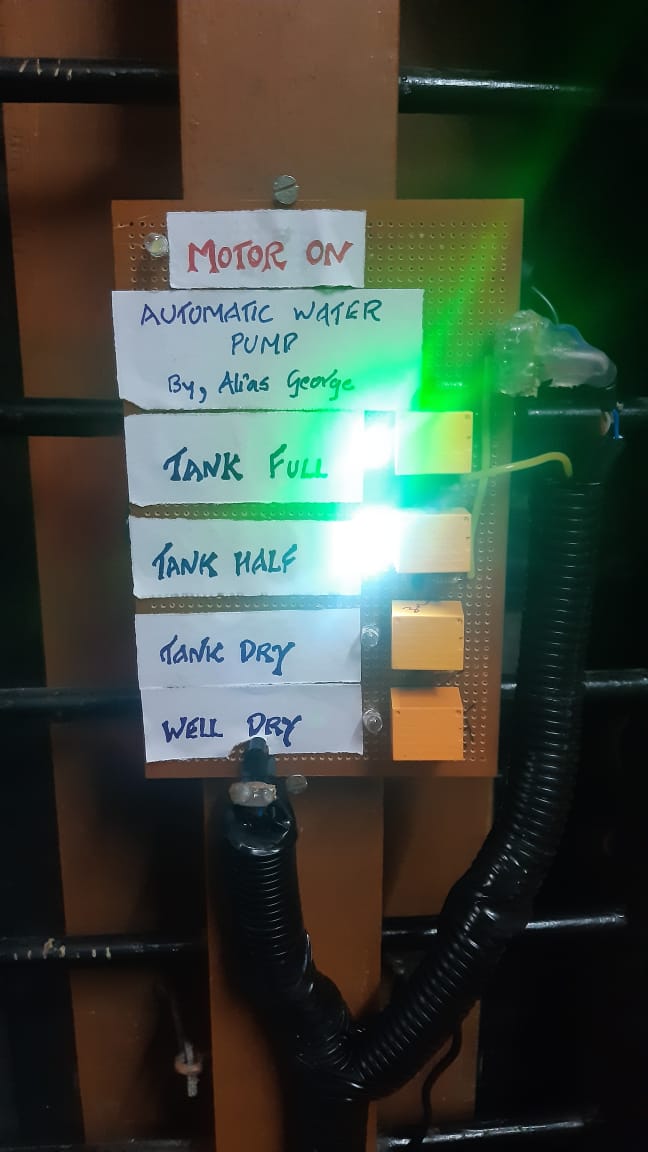 MOTOR ON
AUTOMATIC WATER
PUMP
By, Alias George
TANK FULL
TANK HALF
TANK DRY
WELL DRY